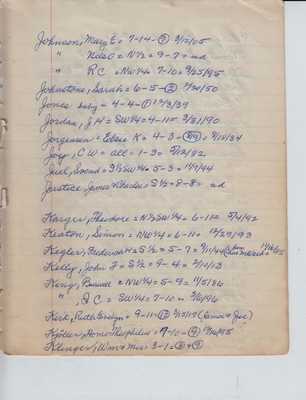 Johnson, Mary E = 7-14-⑦ 3/12/05
" Nels O = N½ = 9-7 = nd
" R C = NW¼ = 7-10 = 9/25/95
Johnstone, Sarah = 6-5-② 7/20/50
Jones baby = 4-4-① 12/3/39
Jordan, J H = SW¼ = 4-11 = 3/31/90
Jorgensen = Elsie K = 4-3- = 9/18/34
Joy, C W = all = 1-3 = 5/12/92
Juel, Svend = S½SW¼ = 5-3 = 11/7/94
Justice, James & Charles S½ = 8-8 = nd
Karger, Theodore = N½SW¼ = 6-11 = 5/4/92
Keaton, Simon = NW¼ = 6-11 = 12/29/93
Kegler, Frederick H = S½ = 5-7 = 9/1/44 from 11/16/05
Kelly, John F = S½ = 9-4 = 2/10/13
King, Burwell = NW¼ = 5-9 = 11/5/86
" , J C = SW¼ = 7-10 = 2/6/96
Kirk, Ruth Evelyn = 9-11-⑫ 10/5/17 (James & Joe)
Kjoller, Homo Theophilus = 7-10-④ 9/16/95
Klinger, Wm & Mrs = 3-1-⑧ & ⑨